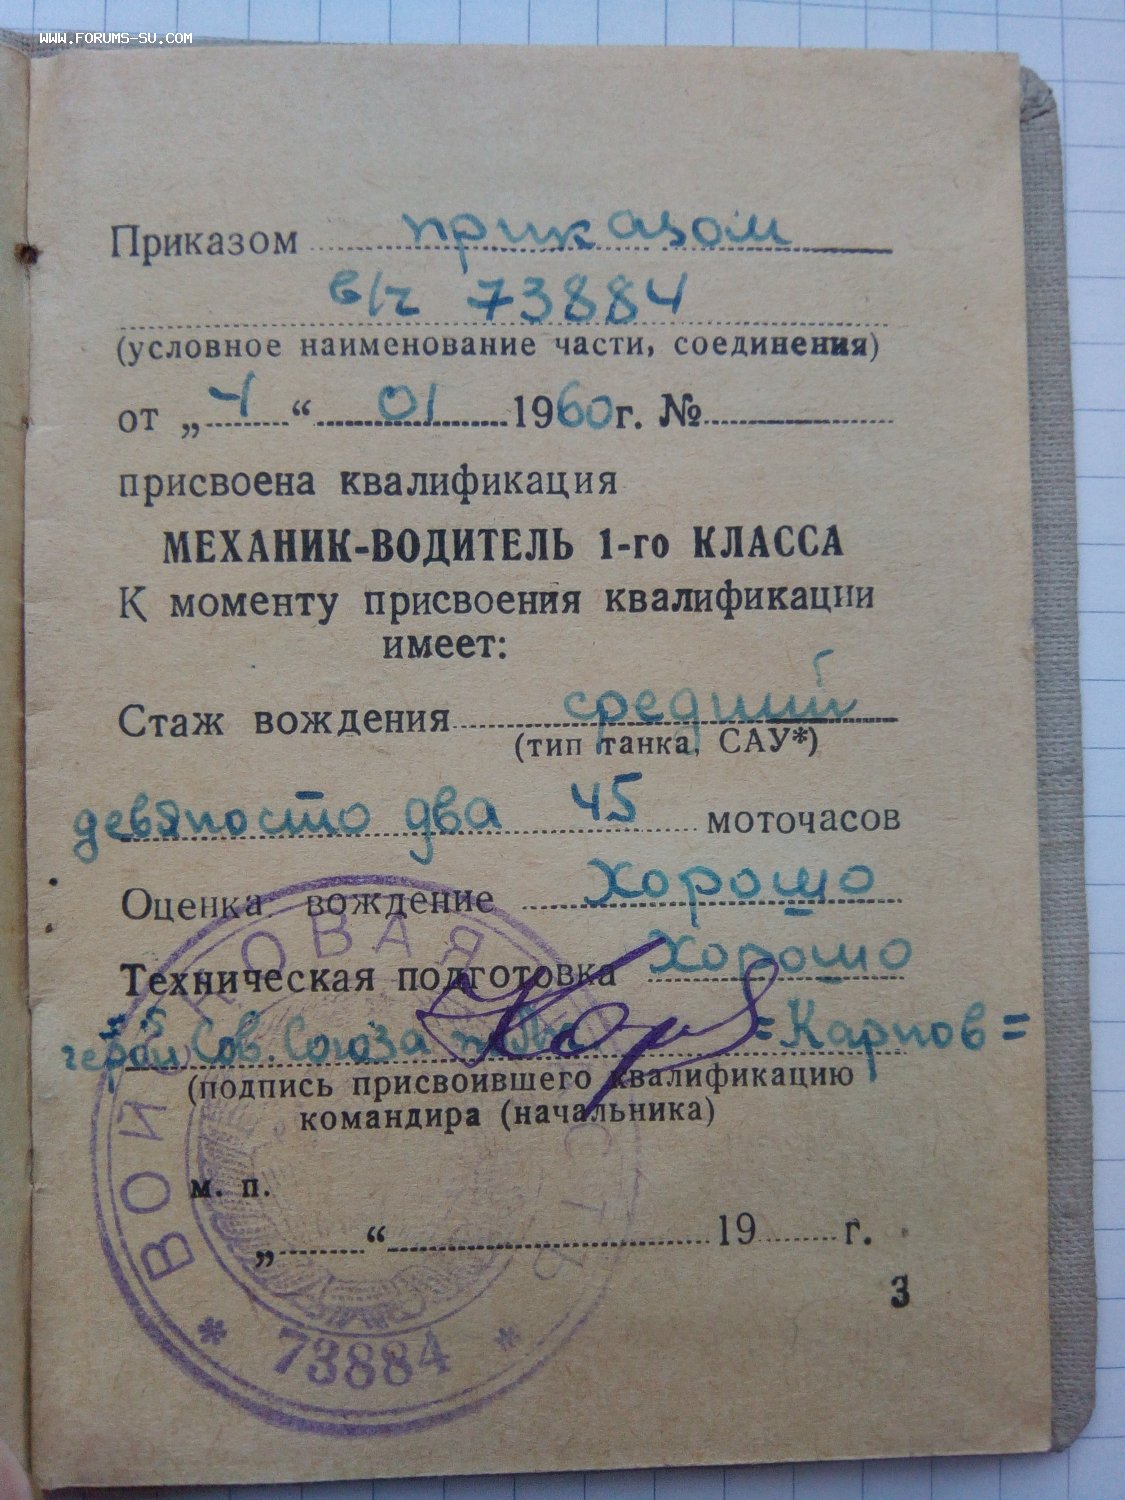 WWW.FORUMS-SU.COM
Приказом приказом
в/ч 73884
(условное наименование части, соединения)
от „ 4 “ 01 1960г. №
присвоена квалификация
МЕХАНИК-ВОДИТЕЛЬ 1-го КЛАССА
К моменту присвоения квалификации
имеет:
Стаж вождения средний
(тип танка, САУ*)
девяносто два 45 моточасов
Оценка: вождение хорошо
Техническая подготовка хорошо
герой Сов. Союза =Карпов=
(подпись присвоившего квалификацию
командира (начальника)
м. п.
„ “ 19 г.
3
ВОЙСКОВАЯ ЧАСТЬ
* 73884 *